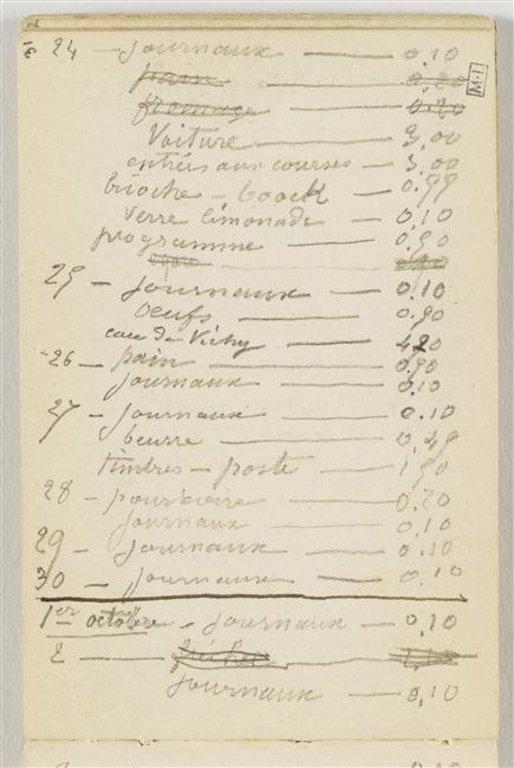 24 - journaux — 0,10
pain — 0,20
fromage — 0.20
Voiture — 3,00
entrées aux courses — 3,00
brioche - boock — 0.99
verre limonade — 0,10
programme — 0,50
M-1
25 - journaux — 0,10
oeufs — 0.90
eau de Vichy
26 - pain — 0,90
journaux — 0,10
27 - journaux — 0.10
beurre
timbres-poste — 1,50
28 - pourboire — 0,20
journaux — 0,10
29 - journaux — 0,10
30 - journaux — 0,10
1er octobre - journaux — 0,10
2 —
journaux — 0,10